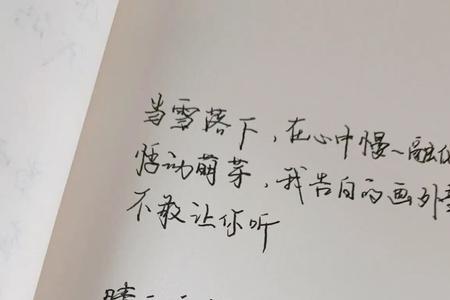 当雪落下，在心中慢~融
悸动萌芽，我告白的画外
不敢让你听